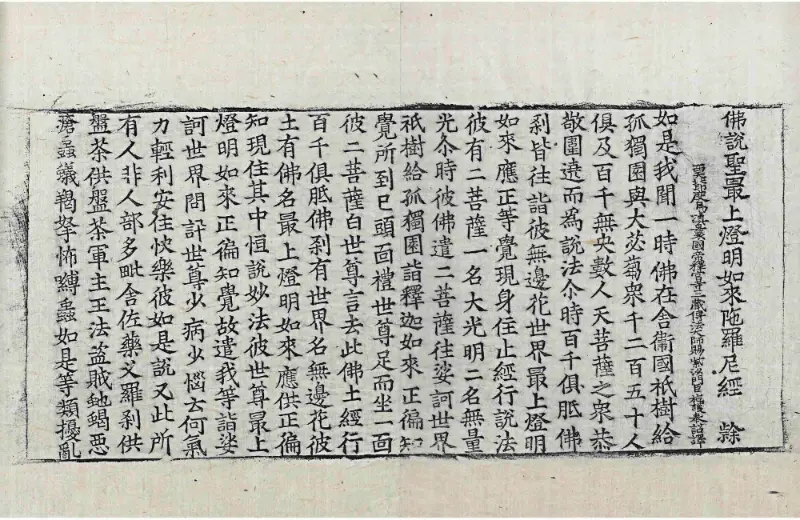 佛說聖最上燈明如來陁羅尼經
北印度烏填曩國帝釋宮寺三藏傳法大師賜紫沙門臣施護奉詔譯
如是我聞一時佛在舍衛國祇樹給
孤獨園與大苾蒭衆千二百五十人
俱及百千無央數人天菩薩之衆恭
敬圍遶而為說法尒時百千俱胝佛
剎皆往詣彼無邊花世界最上燈明
如來應正等覺現身住止經行說法
彼有二菩薩一名大光明二名無量
光尒時彼佛遣二菩薩往娑訶世界
祇樹給孤獨園詣釋迦如來正徧知
覺所到已頭面禮世尊足而坐一面
彼二菩薩白世尊言去此佛土經行
百千俱胝佛剎有世界名無邊花彼
土有佛名最上燈明如來應供正徧
知現住其中恒說妙法彼世尊最上
燈明如來正徧知覺故遣我等詣娑
訶世界問訊世尊少病少惱去何氣
力輕利安住快樂彼如是說又此所
有人非人部多毗舍佐藥叉羅剎供
盤茶供盤茶軍主王法盜賊虵蝎惡
瘡蟲蟻羯拏怖縛蠱如是等類擾亂